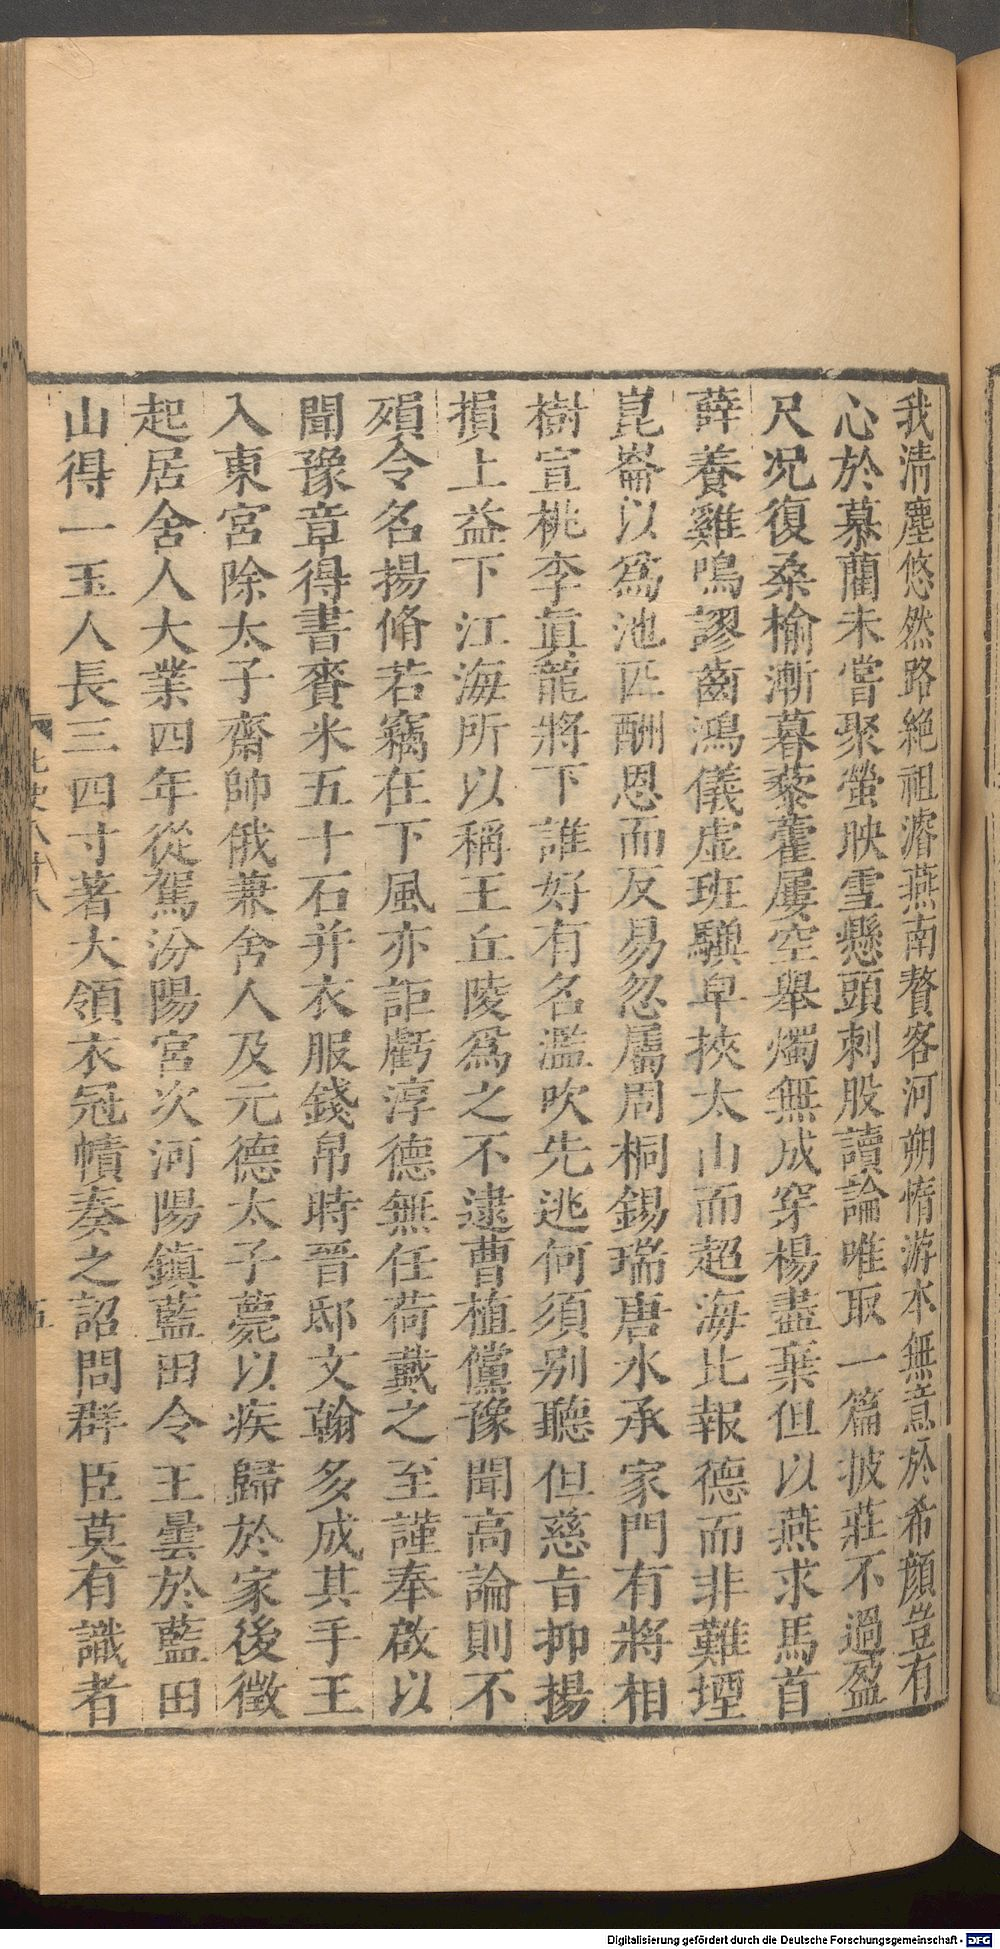 我清塵悠然路絶祖濬燕南贅客河朔惰游本無意於希顔豈有
心於慕藺未嘗聚螢映雪懸頭刺股讀論唯取一篇披莊不過盈
尺况復桑榆漸暮藜藿屢空舉燭無成穿楊盡棄但以燕求馬首
薛養雞鳴謬齒鴻儀虛班驥皁挾太山而超海比報德而非難堙
崑崙以爲池匹酬恩而反易忽屬周桐錫瑞唐水承家門有將相
樹宣桃李眞龍將下誰好有名濫吹先逃何須别聽但慈旨抑揚
損上益下江海所以稱王丘陵爲之不逮曹植儻豫聞高論則不
殞令名揚脩若竊在下風亦詎虧淳德無任荷戴之至謹奉啟以
聞豫章得書賚米五十石并衣服錢帛時晉邸文翰多成其手王
入東宮除太子齋帥俄兼舍人及元德太子薨以疾歸於家後徵
起居舍人大業四年從駕汾陽宮次河陽鎮藍田令王曇於藍田
山得一玉人長三四寸著大領衣冠幘奏之詔問群臣莫有識者
Digitalisierung gefördert durch die Deutsche Forschungsgemeinschaft - DFG